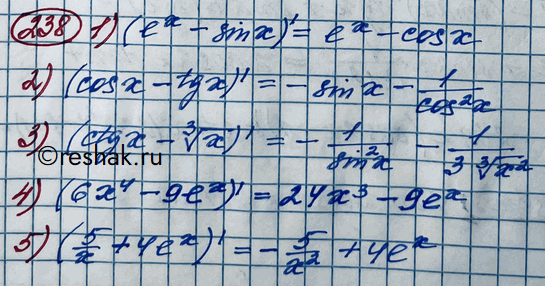 238 1) (e^x - sinx)' = e^x - cosx
2) (cosx - tgx)' = - sinx - 1/cos²x
3) (ctgx - ∛x)' = - 1/sin²x - 1/(3∛x²)
©reshak.ru
4) (6x⁴ - 9e^x)' = 24x³ - 9e^x
5) (5/x + 4e^x)' = - 5/x² + 4e^x